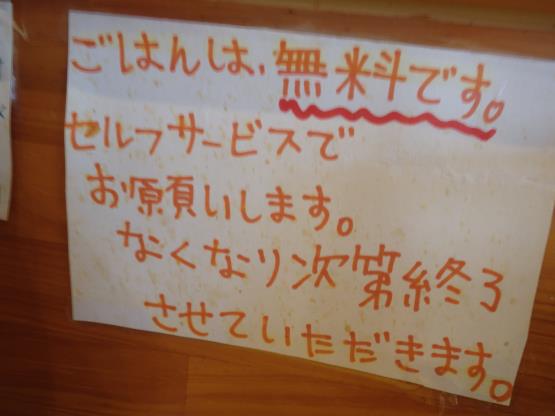 ごはんは、無料です。
セルフサービスで
お願いします。
なくなり次第終了
させていただきます。